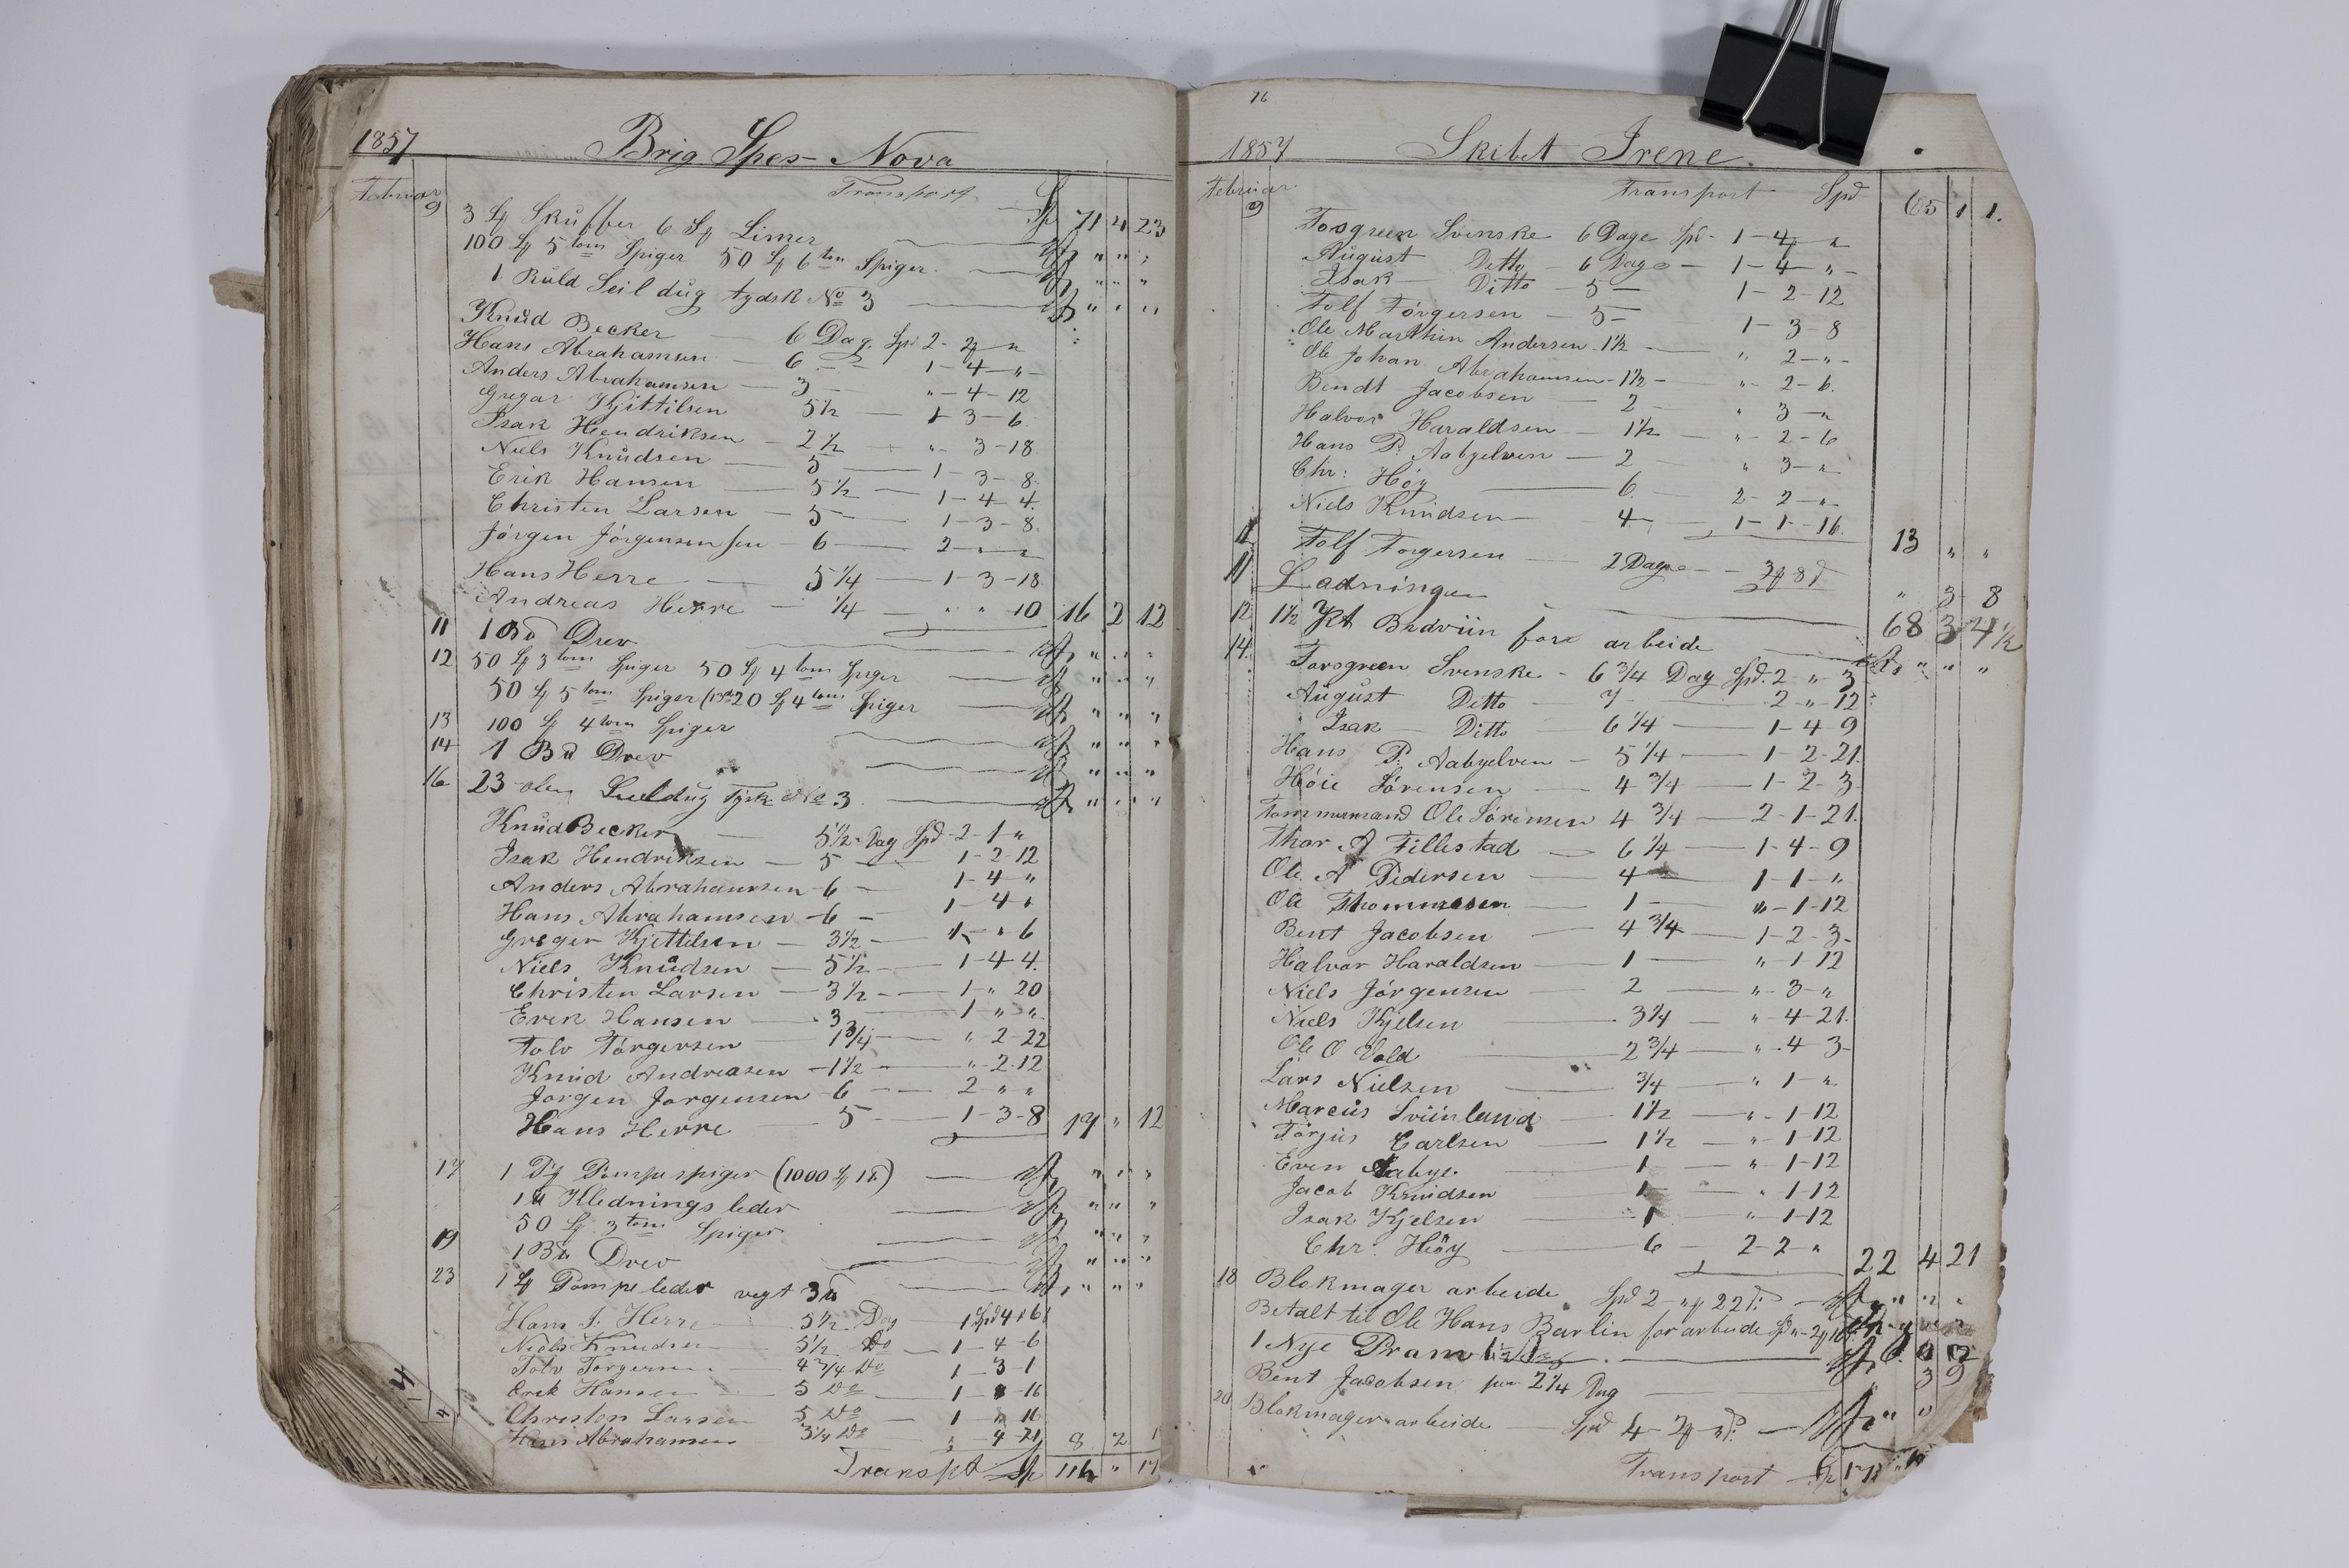 1857 Brig Spes-Nova
Februar Transport Sp 71 4 23
9 3 St Skuffer 6 St Limer " " "
100 St 5 tom Spiger 50 St 6 tom Spiger " " "
1 Ruld Seildug tydsk No 3 " " "
Knud Becker 6 Dag. Sp. 2 - 2 - "
Hans Abrahamsen - 6 - 1 - 4 - "
Anders Abrahamsen - 3 - " - 4 - 12
Gregar Kjittilsen 5 1/2 - 1 - 3 - 6
Isak Hendriksen - 2 1/2 - " - 3 - 18
Niels Knudsen - 5 - 1 - 3 - 8
Erik Hansen - 5 1/2 - 1 - 4 - 4
Christen Larsen - 5 - 1 - 3 - 8
Jörgen Jörgensen sen - 6 - 2 - " - "
Hans Herre - 5 1/4 - 1 - 3 - 18
Andreas Herre - 1/4 - " " 10 16 2 12
11 1 Bd Drev " " "
12 50 St 3 tom Spiger 50 St 4 tom Spiger " " "
50 St 5 tom Spiger (13de 20 St 4 tom Spiger " " "
13 100 St 4 tom Spiger " " "
14 1 Bd Drev " " "
16 23 alen Seeldug Tysk No 3 " " "
Knud Becker - 5 1/2 - Dag Spd - 2 - 1 - "
Isak Hendriksen - 5 - 1 - 2 - 12
Anders Abrahamsen - 6 - 1 - 4 - "
Hans Abrahamsen - 6 - 1 - 4 "
Greger Kjettelsen - 3 1/2 - 1 - " 6
Niels Knudsen - 5 1/2 - 1 - 4 4
Christen Larsen - 3 1/2 - 1 - " 20
Erik Hansen - 3 - 1 " "
Tolv Törgersen - 1 3/4 - " 2 - 22
Knud Andreasen - 1 1/2 - " - 2 - 12
Jorgen Jorgensen - 6 - 2 " "
Hans Herre - 5 - 1 - 3 - 8 19 " 12
17 1 Pf Pompespiger (1000 St 1 ß) " " "
1 ℔ Kledningsleder " " "
50 St 3 tom Spiger " " "
19 1 Bd Drev " " "
23 1 St Pompe leder vegt 3 ℔ " " "
Hans J. Herre 5 1/2 Dag - 1 Spd 4 " 6
Niels Knudsen 5 1/2 Do - 1 - 4 - 6
Tolv Torgersen 4 3/4 Do 1 - 3 - 1
Erik Hansen 5 Do - 1 - " - 16
Christen Larsen 5 Do - 1 " 16
Hans Abrahamsen 3 1/4 Do - " 4 - 21 8 2 1
Transpt Sp 116 " 17
76
1857 Skibet Irene.
Februar Transport Spd 65 1 1.
9 Fosgreen Svenske 6 Dage Spd - 1 - 4 - "
August Ditto - 6 Dage - 1 - 4 - " -
Isak Ditto - 5 - 1 - 2 - 12
Tolf Törgersen - 5 - 1 - 3 - 8
Ole Marthin Andersen - 1 1/2 - " 2 - " -
Ole Johan Abrahamsen - 1 1/2 - " - 2 - 6.
Bendt Jacobsen - 2 - " 3 - "
Halvor Haraldsen - 1 1/2 - " - 2 - 6
Hans P. Aabyelven - 2 " 3 - "
Chr: Höy - 6 - 2 - 2 - "
Niels Knudsen - 4 - 1 - 1 - 16 13 " "
11 Tolf Torgersen - 2 Dage - 3 8 " 3 8
11 Ladningen 68 3 4 1/2
12 1 1/2 Kt Brdviin forr arbeide " " "
14 Forsgreen Svenske - 6 3/4 Dag Spd. 2 - " - 3
August Ditto - 7 - 2 - " - 12
Isak Ditto - 6 1/4 - 1 - 4 - 9
Hans P. Aabyelven - 5 1/4 - 1 - 2 - 21
Höie Sörensen - 4 3/4 - 1 - 2 - 3
Tommermand Ole Sörensen 4 3/4 - 2 - 1 - 21.
Thor A Fillestad - 6 1/4 - 1 - 4 - 9
Ole A Pedersen - 4 - 1 - 1 - "
Ole Thommesen - 1 - " - 1 - 12
Bent Jacobsen - 4 3/4 - 1 - 2 - 3 -
Halvor Haraldsen - 1 - " - 1 - 12
Niels Jörgensen - 2 - " - 3 - "
Niels Kjelsen - 3 1/4 - " - 4 - 21.
Ole O Vold - 2 3/4 - " - 4 - 3 -
Lars Nielsen - 3/4 - " 1 - "
Marcus Sviinland - 1 1/2 - " - 1 - 12
Törjus Carlsen - 1 1/2 - " - 1 - 12
Even Aabye - 1 - " 1 - 12
Jacob Knudsen - 1 - " 1 - 12
Isak Kjelsen - 1 - " 1 - 12
Chr. Höy - 6 - 2 - 2 - " 22 4 21
18 Blokmager arbeide Spd 2 - " 22 " " "
Betalt til Ole Hans Barlin for arbeide
1 Nye Pram
Bent Jacobsen for 2 1/4 Dag " 3 9
20 Blokmager arbeide - Spd 4 - 2 - " " "
Transport Sp